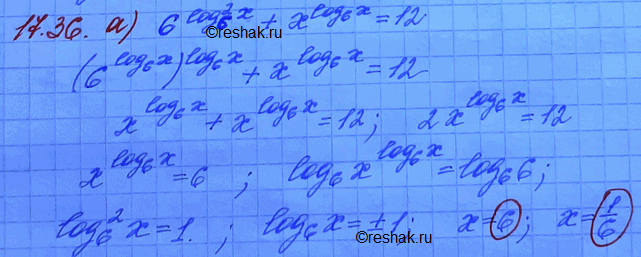 17.36. а) 6^(log₆² x) + x^(log₆ x) = 12
©reshak.ru
(6^(log₆ x))^(log₆ x) + x^(log₆ x) = 12
x^(log₆ x) + x^(log₆ x) = 12; 2x^(log₆ x) = 12
x^(log₆ x) = 6 ; log₆ x^(log₆ x) = log₆ 6;
log₆² x = 1. ; log₆ x = ±1; x = 6; x = 1/6
©reshak.ru